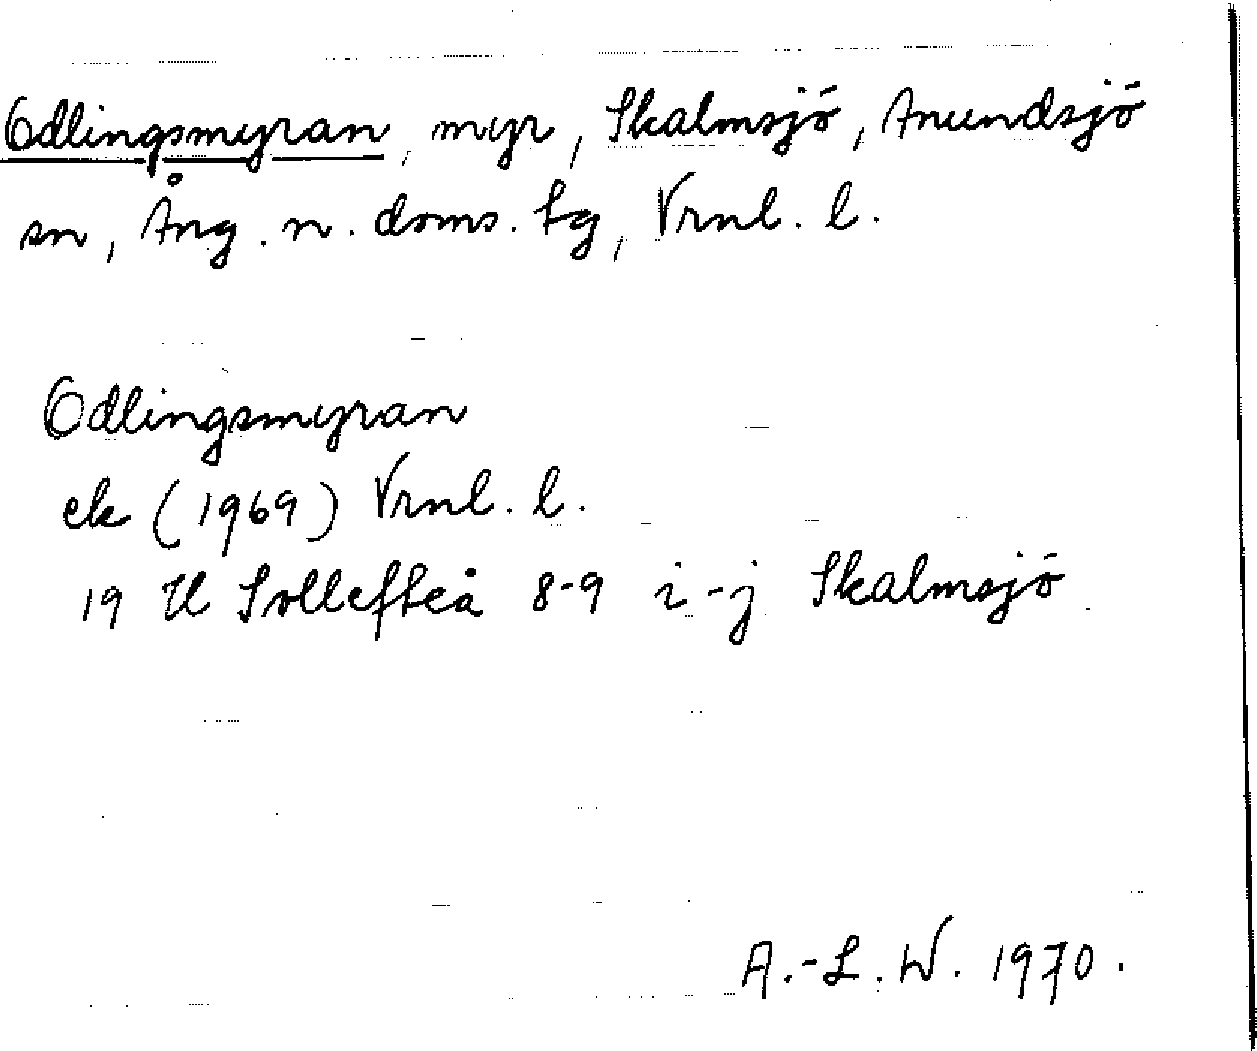 Odlingsmyran, myr, Skalmsjö, Anundsjö
sn, Ång. n. doms. tg, Vrnl. l.
Odlingsmyran
ek (1969) Vrnl. l.
19 H Sollefteå 8-9 i-j Skalmsjö
A.-L. W. 1970.